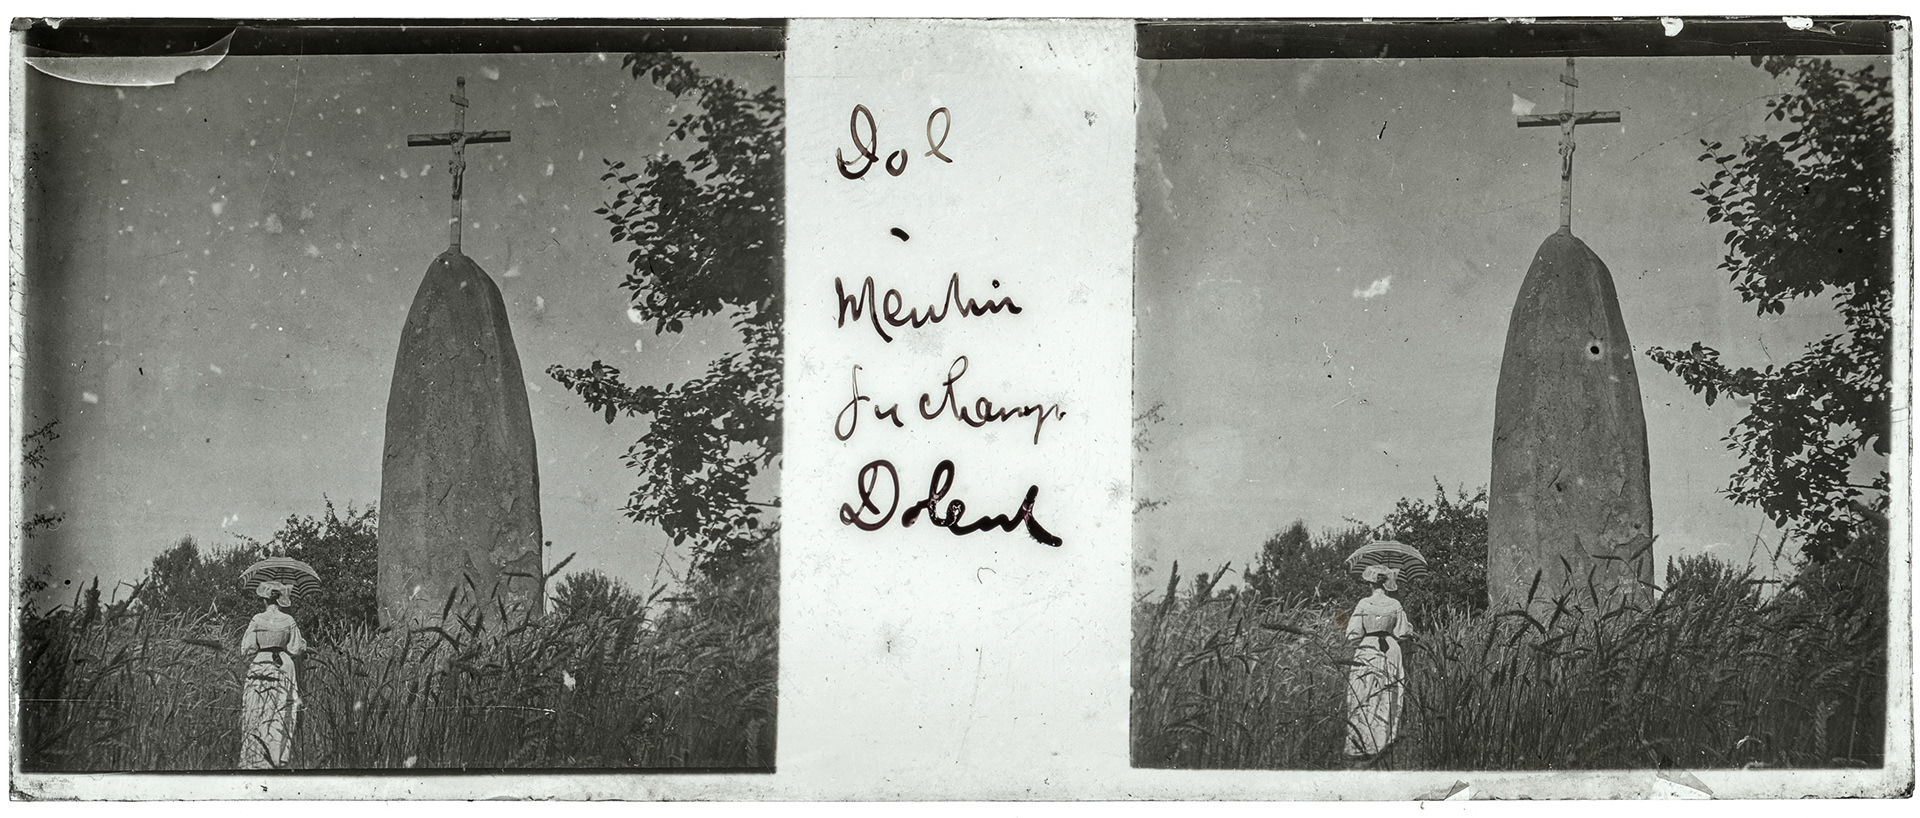 Dol
-
Menhir
du champ
Dolent